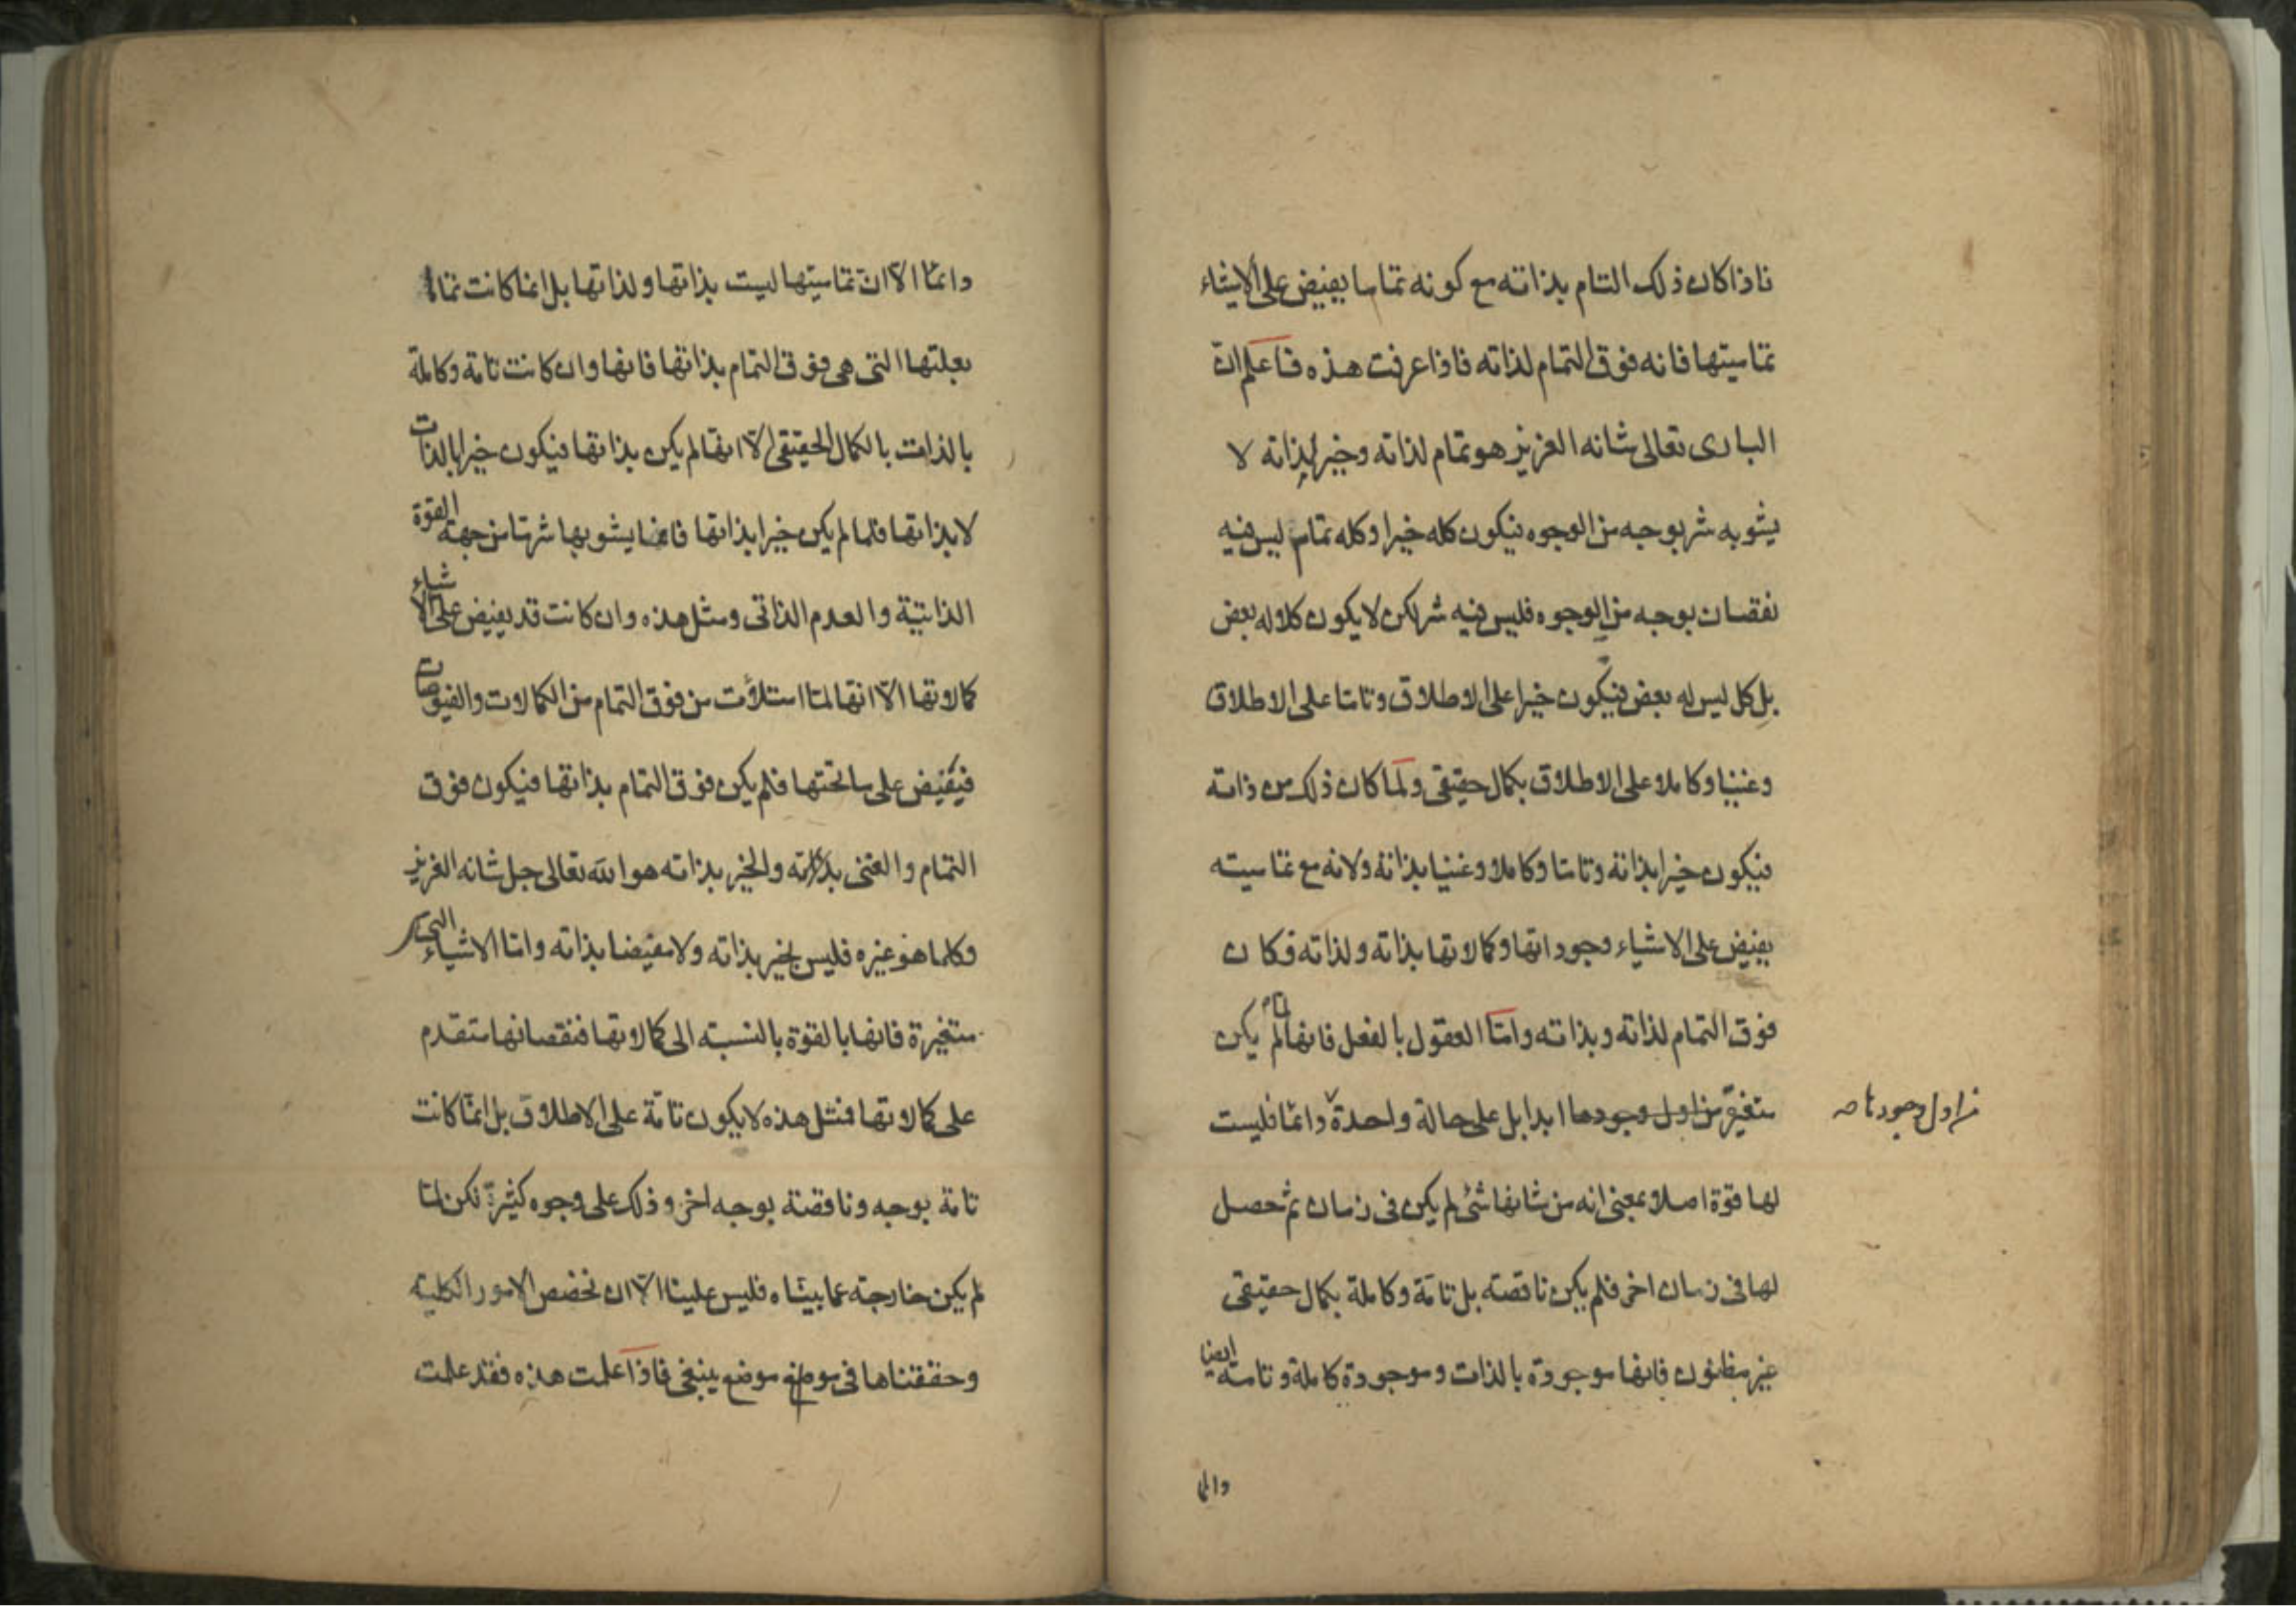 فاذا كان ذلك التام بذاته مع كونه تماما يفيض على الاشياء
تماميتها فانه فوق التمام لذاته فاذا عرفت هذه فاعلم ان
البارى تعالى شانه العزيز هو تمام لذاته وخير لذاته لا
يشوبه شر بوجه من الوجوه فيكون كله خيرا وكله تمام ليس فيه
نقصان بوجه من الوجوه فليس فيه شر لكن لا يكون كلا له بعض
بل كل ليس له بعض فيكون خيرا على الاطلاق وتاما على الاطلاق
وغنيا وكاملا على الاطلاق بكمال حقيقى ولما كان ذلك من ذاته
فيكون خيرا بذاته وتاما وكاملا وغنيا بذاته ولانه مع تماميته
يفيض على الاشياء وجوداتها وكمالاتها بذاته ولذاته فكان
فوق التمام لذاته وبذاته وامّا العقول بالفعل فانها لم يكن
متغيرة من اول وجودها ابدا بل على حالة واحدة دائما فليست
من اول وجودها صه
لها قوة اصلا بمعنى انه من شانها شئ لم يكن فى زمان ثم حصل
لها فى زمان اخر فلم يكن ناقصته بل تامّة وكاملة بكمال حقيقى
غير مظنون فانها موجودة بالذات وموجودة كاملة وتامة ايضا
دائما الّا انّ تماميتها ليست بذاتها ولذاتها بل انما كانت تماما
بعلتها التى هى فوق التمام بذاتها فانها وان كانت تامة وكاملة
بالذات بالكمال الحقيقى الّا انها لم يكن بذاتها فيكون خيرا بالذات
لا بذاتها فلما لم يكن خيرا بذاتها فانما يشوبها شر ما من جهة القوة
الذاتية والعدم الذاتى ومثل هذه وان كانت قد يفيض على الاشياء
كمالاتها الّا انها لمّا امتلأت من فوق التمام من الكمالات والفيوضات
فيفيض على ما تحتها فلم يكن فوق التمام بذاتها فيكون فوق
التمام والغنى بذاته والخير بذاته هو الله تعالى جل شانه العزيز
وكلما هو غيره فليس بخير بذاته ولا مفيضا بذاته وامّا الاشياء التى
متغيرة فانها بالقوة بالنسبته الى كمالاتها فنقصانها متقدم
على كمالاتها فمثل هذه لا يكون تامّة على الاطلاق بل انمّا كانت
تامة بوجه وناقصة بوجه اخر وذلك على وجوه كثيرة لكن لمّا
لم يكن خارجة عما بيناه فليس علينا الّا ان نخصص الامور الكلية
وحققناها فى موضع موضع ينبغى فاذا علمت هذه فقد علمت